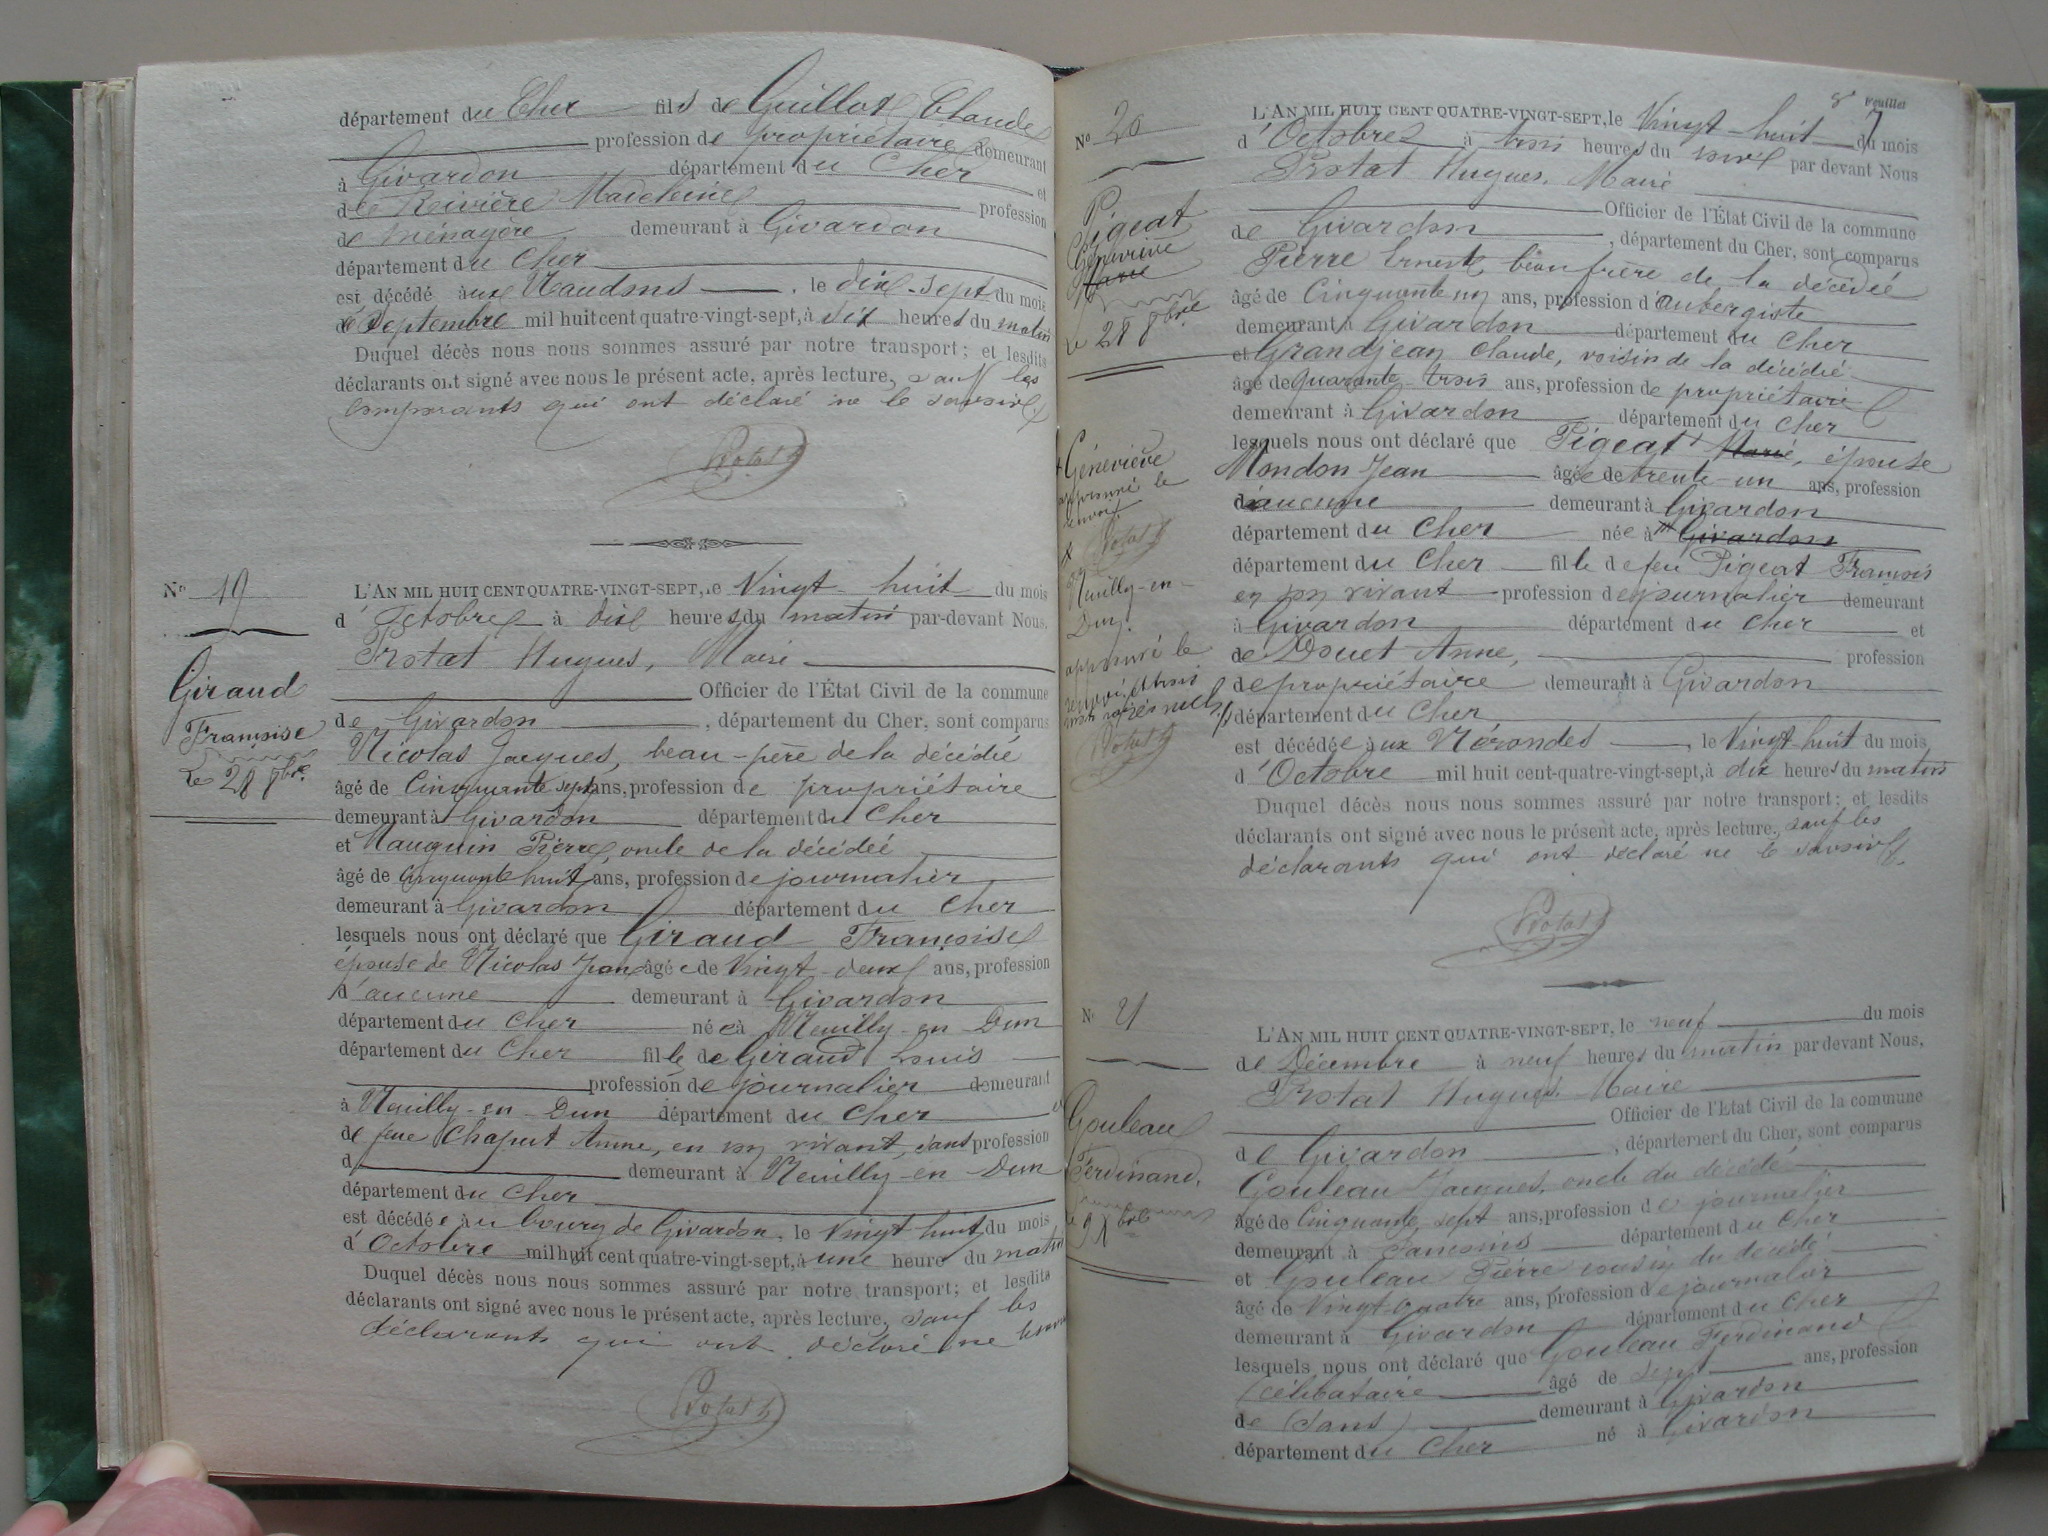 département du Cher fils de Guillot Claude
profession de propriétaire demeurant
à Givardon département du Cher et
de Rivière profession
de ménagère demeurant à Givardon
département du Cher
est décédé aux Naudons, le dix-sept du mois
de Septembre mil huit cent quatre-vingt-sept, à six heures du matin
Duquel décès nous nous sommes assuré par notre transport; et lesdits
déclarants ont signé avec nous le présent acte, après lecture, sauf les
comparants qui ont déclaré ne le savoir
Protat h
N° 19
Giraud
Françoise
Le 28 8bre
L'AN MIL HUIT CENT QUATRE-VINGT-SEPT, le Vingt huit du mois
d'Octobre à dix heures du matin par-devant Nous,
Protat Hugues, Maire
Officier de l'État Civil de la commune
de Givardon, département du Cher, sont comparus
Nicolas Jacques, beau-père de la décédée
âgé de Cinquante sept ans, profession de propriétaire
demeurant à Givardon département du Cher
et Mauguin Pierre, oncle de la décédée
âgé de cinquante huit ans, profession de journalier
demeurant à Givardon département du Cher
lesquels nous ont déclaré que Giraud Françoise
épouse de Nicolas Jean âgée de Vingt-deux ans, profession
d'aucune demeurant à Givardon
département du Cher née à Neuilly-en-Dun
département du Cher fille de Giraud Louis
profession de journalier demeurant
à Neuilly-en-Dun département du Cher et
de feue Chaput Anne, en son vivant, sans profession
d demeurant à Neuilly-en Dun
département du Cher
est décédée au bourg de Givardon, le Vingt huit du mois
d'Octobre mil huit cent quatre-vingt-sept, à une heure du matin
Duquel décès nous nous sommes assuré par notre transport; et lesdits
déclarants ont signé avec nous le présent acte, après lecture, sauf les
déclarants qui ont déclaré ne le
Protat h
8e feuillet
N° 20
Pigeat
Geneviève
Marie
Le 28 8bre
L'AN MIL HUIT CENT QUATRE-VINGT-SEPT, le Vingt-huit du mois
d'Octobre à trois heures du soir par devant Nous
Protat Hugues, Maire
Officier de l'État Civil de la commune
de Givardon, département du Cher, sont comparus
Pierre Ernest, beau frère de la décédée
âgé de Cinquante un ans, profession d'aubergiste
demeurant à Givardon département du Cher
et Grandjean Claude, voisin de la décédée
âgé de quarante-trois ans, profession de propriétaire
demeurant à Givardon département du Cher
lesquels nous ont déclaré que Pigeat Marie, épouse
Mondon Jean âgée de trente-un ans, profession
d'aucune demeurant à Givardon
département du Cher née à Givardon
département du Cher fille de feu Pigeat François
en son vivant profession de journalier demeurant
à Givardon département du Cher et
de Douet Anne, profession
de propriétaire demeurant à Givardon
département du Cher
est décédée aux Nérondes, le Vingt huit du mois
d'Octobre mil huit cent-quatre-vingt-sept, à dix heures du matin
Duquel décès nous nous sommes assuré par notre transport; et lesdits
déclarants ont signé avec nous le présent acte, après lecture, sauf les
déclarants qui ont déclaré ne le savoir
Protat h
Geneviève
approuvé le
renvoi
Protat h
Neuilly-en-
Dun
approuvé le
renvoi et trois
mots rayés nuls
Protat h
N° 21
Gouleau
Ferdinand,
Le 9 Xbre
L'AN MIL HUIT CENT QUATRE-VINGT-SEPT, le neuf du mois
de Décembre à neuf heures du matin par devant Nous,
Protat Hugues, Maire
Officier de l'Etat Civil de la commune
de Givardon, département du Cher, sont comparus
Gouleau Jacques, oncle du décédé
âgé de Cinquante sept ans, profession de journalier
demeurant à Sancoins département du Cher
et Gouleau Pierre cousin du décédé
âgé de Vingt-quatre ans, profession de journalier
demeurant à Givardon département du Cher
lesquels nous ont déclaré que Gouleau Ferdinand
célibataire âgé de sept ans, profession
de (sans) demeurant à Givardon
département du Cher né à Givardon